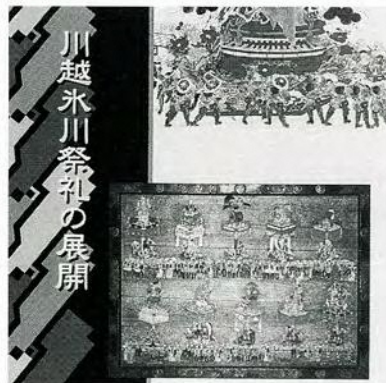 川越氷川祭礼の展開